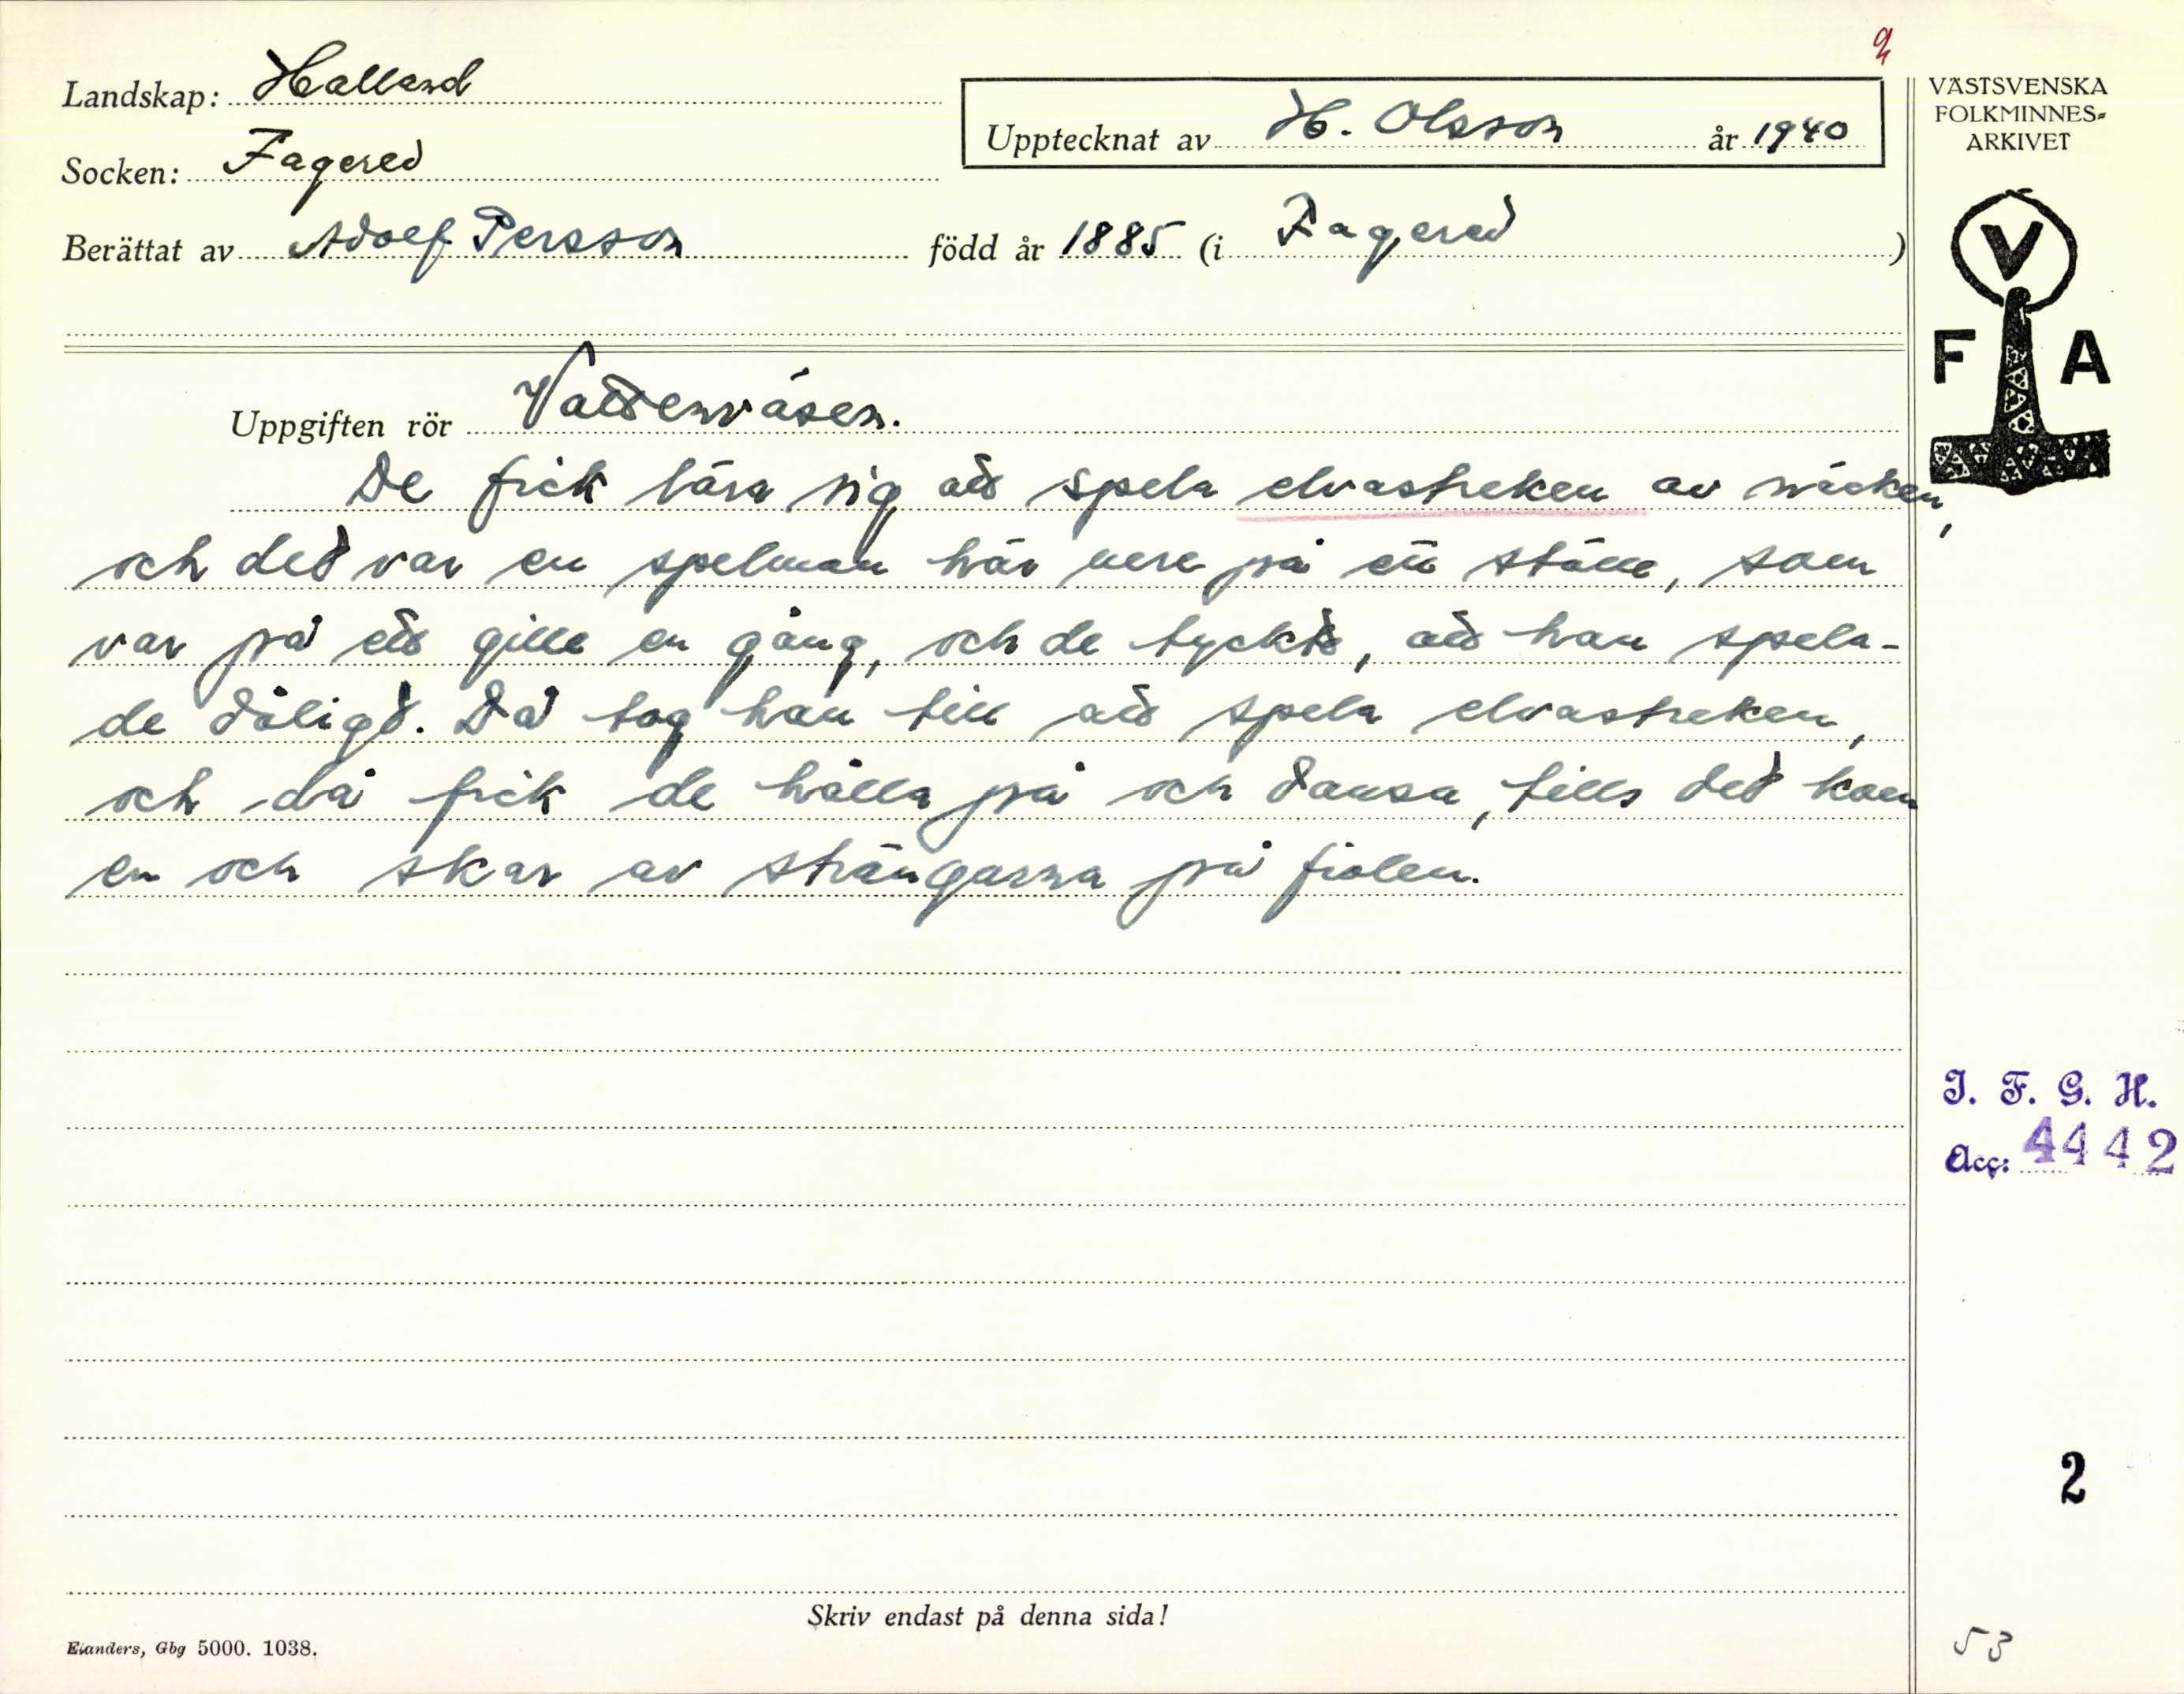 2
Landskap: Halland
Upptecknat av H. Olsson år 1940
VÄSTSVENSKA
FOLKMINNES=
ARKIVET
Socken: Fagered
Berättat av Adolf Persson född år 1885 (i Fagered)
V
F A
Uppgiften rör Vattenväsen.
De fick lära sig att spela elvastreken av näcken,
och det var en spelman här nere på ett ställe, som
var på ett gille en gång, och de tyckte, att han spela-
de dåligt. Då tog han till att spela elvastreken,
och då fick de hålla på och dansa, tills det kom
en och skar av strängarna på fiolen.
I. F. G. H.
Acc: 4442
2
Skriv endast på denna sida!
Elanders, Gbg 5000. 1038.
53